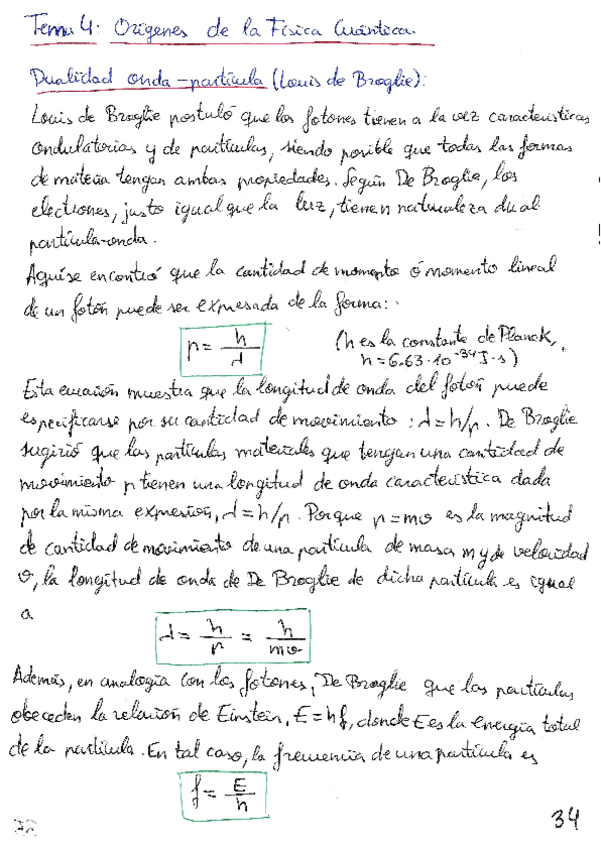 Tema 4: Orígenes de la Física Cuántica.
Dualidad onda-partícula (Louis de Broglie):
Louis de Broglie postuló que los fotones tienen a la vez características
ondulatorias y de partículas, siendo posible que todas las formas
de materia tengan ambas propiedades. Según De Broglie, los
electrones, justo igual que la luz, tienen naturaleza dual
partícula-onda.
Aquí se encontró que la cantidad de momento ó momento lineal
de un fotón puede ser expresada de la forma:
p = h/λ (h es la constante de Planck,
h = 6.63·10^-34 J·s)
Esta ecuación muestra que la longitud de onda del fotón puede
especificarse por su cantidad de movimiento: λ=h/p. De Broglie
sugirió que las partículas materiales que tengan una cantidad de
movimiento p tienen una longitud de onda característica dada
por la misma expresión, λ=h/p. Porque p=mv es la magnitud
de cantidad de movimiento de una partícula de masa m y de velocidad
v, la longitud de onda de De Broglie de dicha partícula es igual
a
λ = h/p = h/mv
Además, en analogía con los fotones, De Broglie que las partículas
obececden la relación de Einstein, E=hf, donde E es la energía total
de la partícula. En tal caso, la frecuencia de una partícula es
f = E/h
34